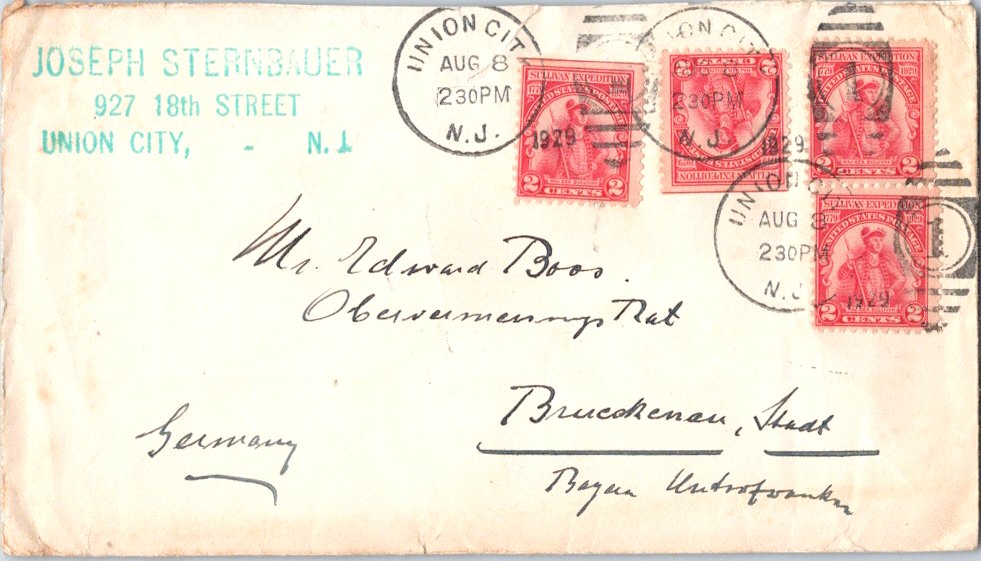 JOSEPH STERNBAUER
927 18th STREET
UNION CITY, - N.J.
UNION CITY
AUG 8
230PM
N.J.
1929
SULLIVAN EXPEDITION
1779 1929
UNITED STATES POSTAGE
2 CENTS 2
UNION CITY
AUG 8
230PM
N.J.
1929
SULLIVAN EXPEDITION
UNITED STATES POSTAGE
2 CENTS 2
SULLIVAN EXPEDITION
1779 1929
UNITED STATES POSTAGE
MAJ. GEN. SULLIVAN
2 CENTS 2
1
UNION CITY
AUG 8
230PM
N.J.
1929
SULLIVAN EXPEDITION
1779
UNITED STATES POSTAGE
MAJ. GEN. SULLIVAN
2 CENTS 2
1
Mr. Edward Boos.
Obervermessungs Rat
Brueckenau, Stadt
Germany
Bayern Unterfranken